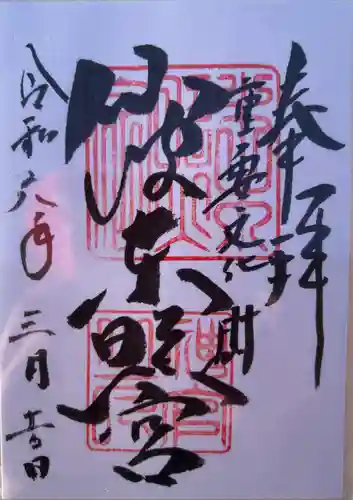 奉拝
重要文化財
仙波東照宮
令和六年三月吉日